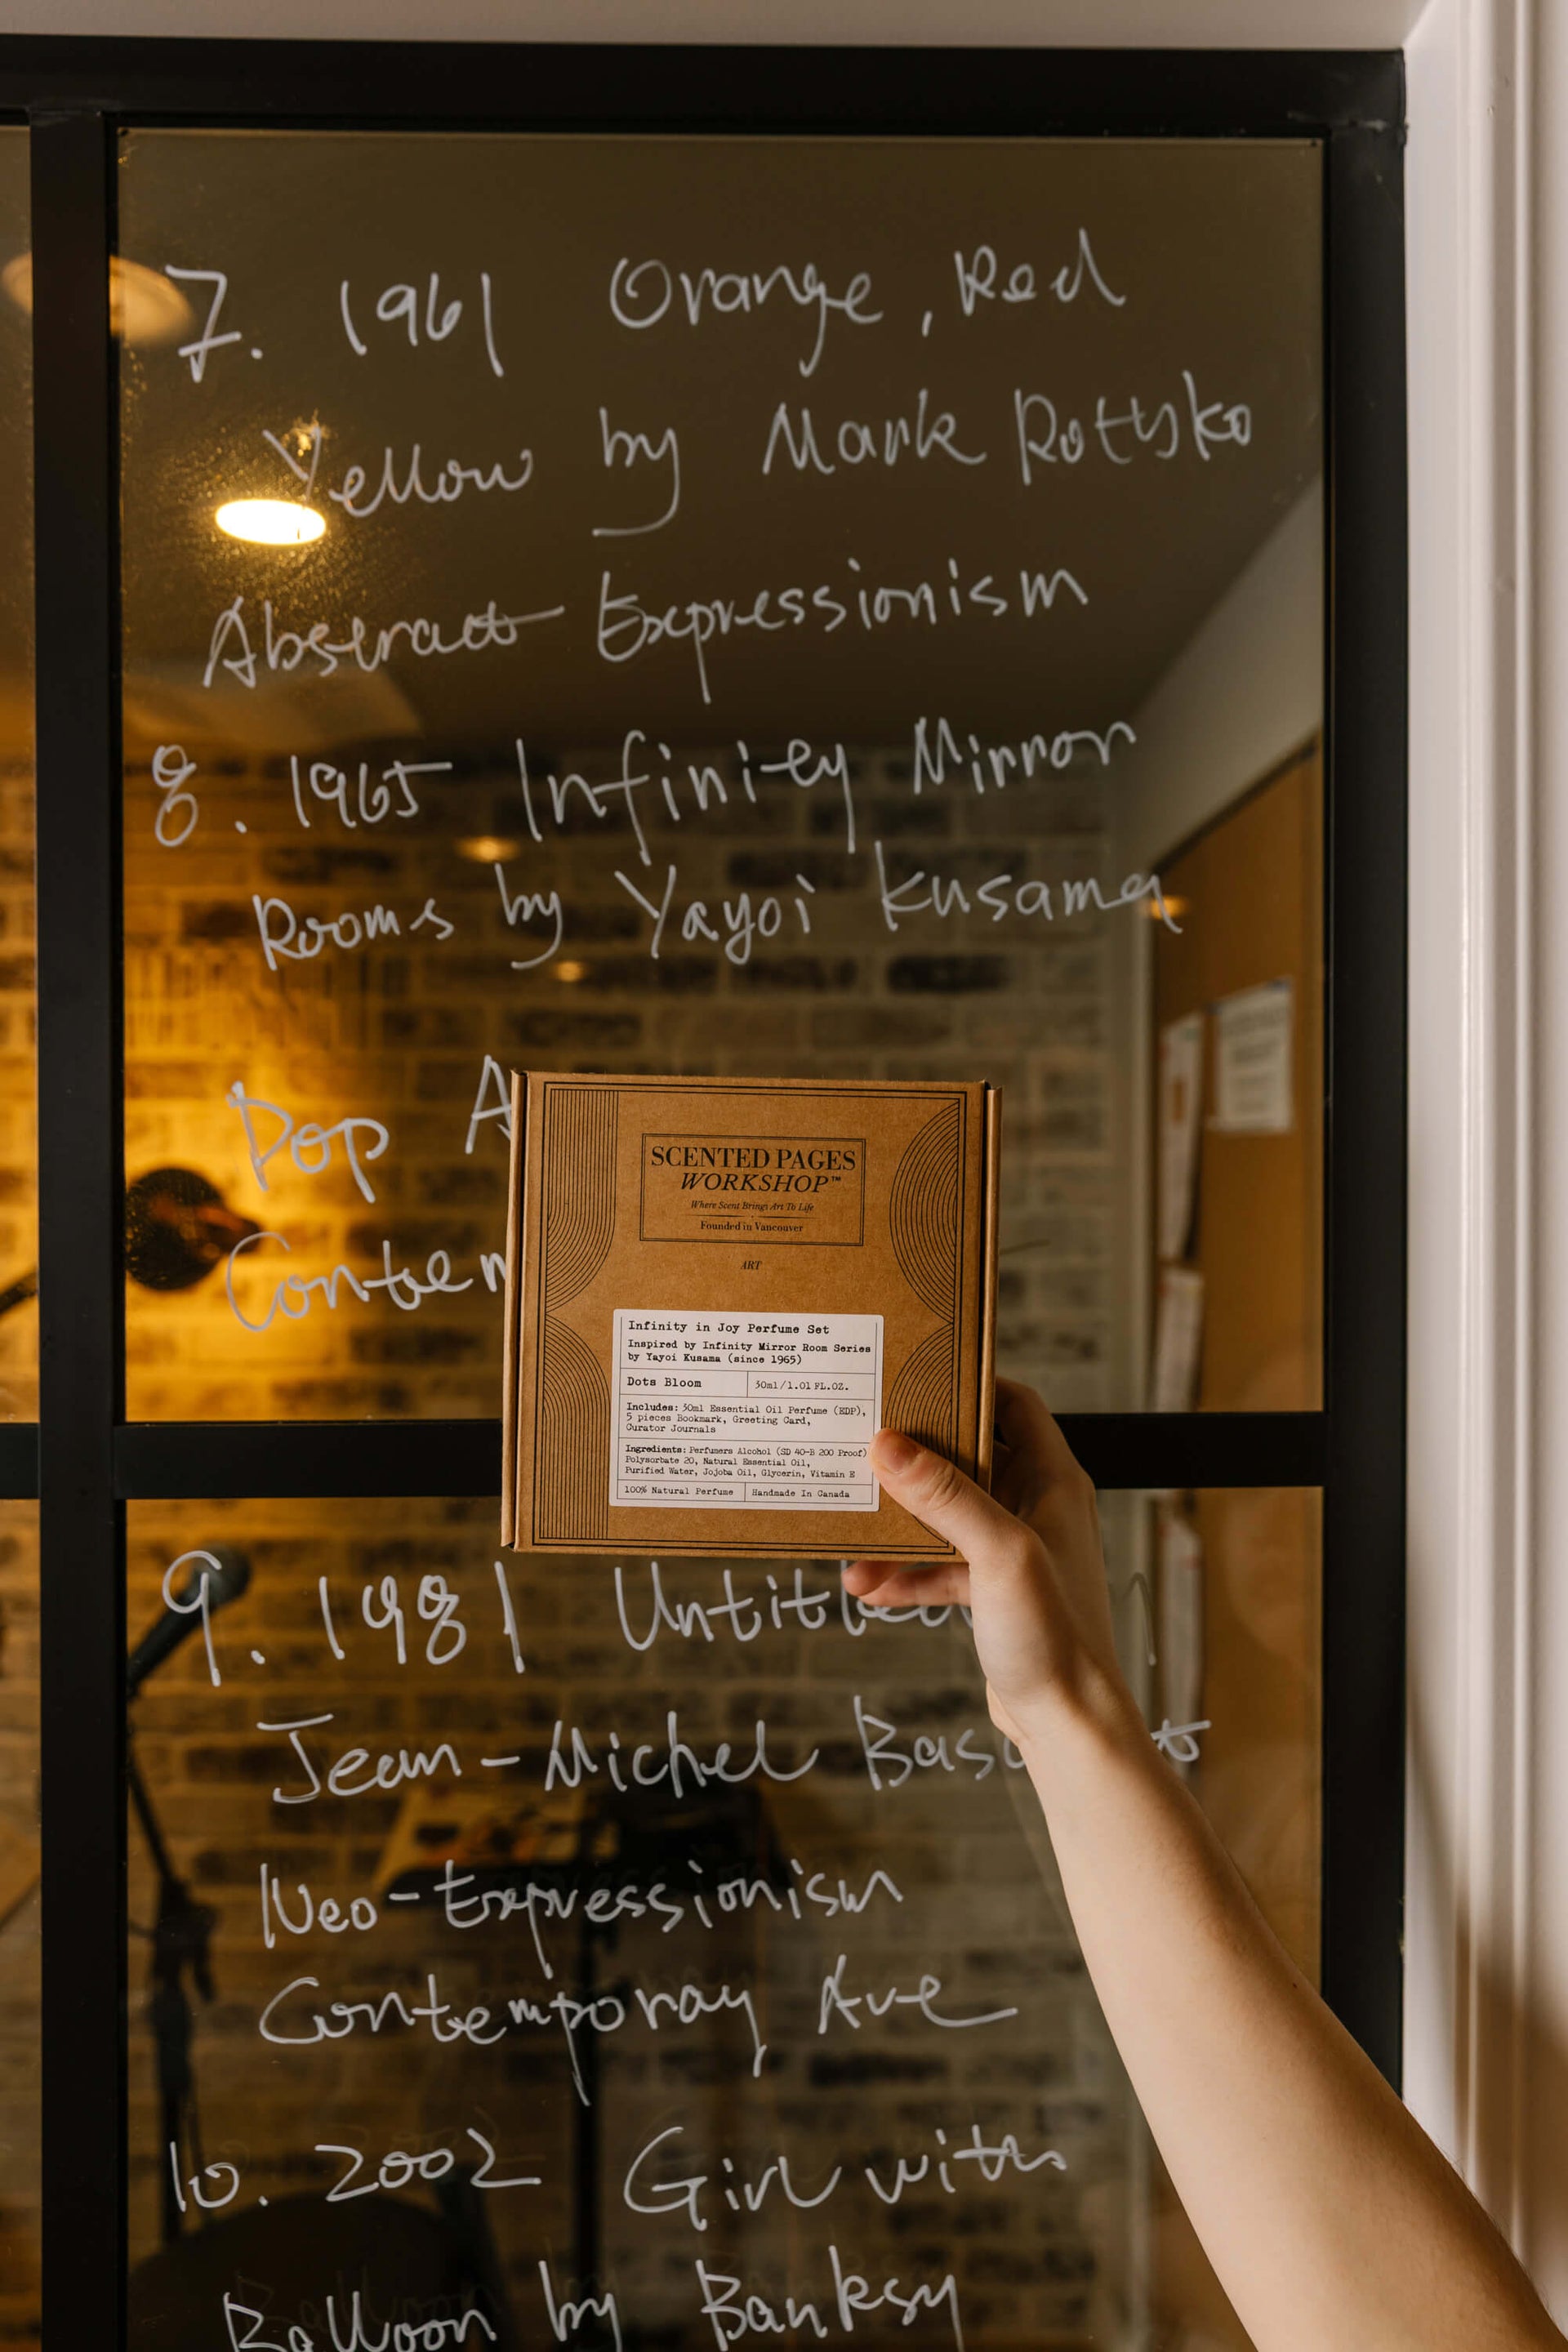 7. 1961 Orange, Red
Yellow by Mark Rothko
Abstract Expressionism
8. 1965 Infinity Mirror
Rooms by Yayoi Kusama
Pop A
Contem
SCENTED PAGES
WORKSHOP™
Where Scent Brings Art To Life
Founded in Vancouver
ART
Infinity in Joy Perfume Set
Inspired by Infinity Mirror Room Series
by Yayoi Kusama (since 1965)
Dots Bloom 30ml/1.01 FL.OZ.
Includes: 30ml Essential Oil Perfume (EDP),
5 pieces Bookmark, Greeting Card,
Curator Journals
Ingredients: Perfumers Alcohol (SD 40-B 200 Proof)
Polysorbate 20, Natural Essential Oil,
Purified Water, Jojoba Oil, Glycerin, Vitamin E
100% Natural Perfume Handmade In Canada
9. 1981 Untitled
Jean-Michel Bas
Neo-Expressionism
Contemporay Art
10. 2002 Girl with
Balloon by Banksy